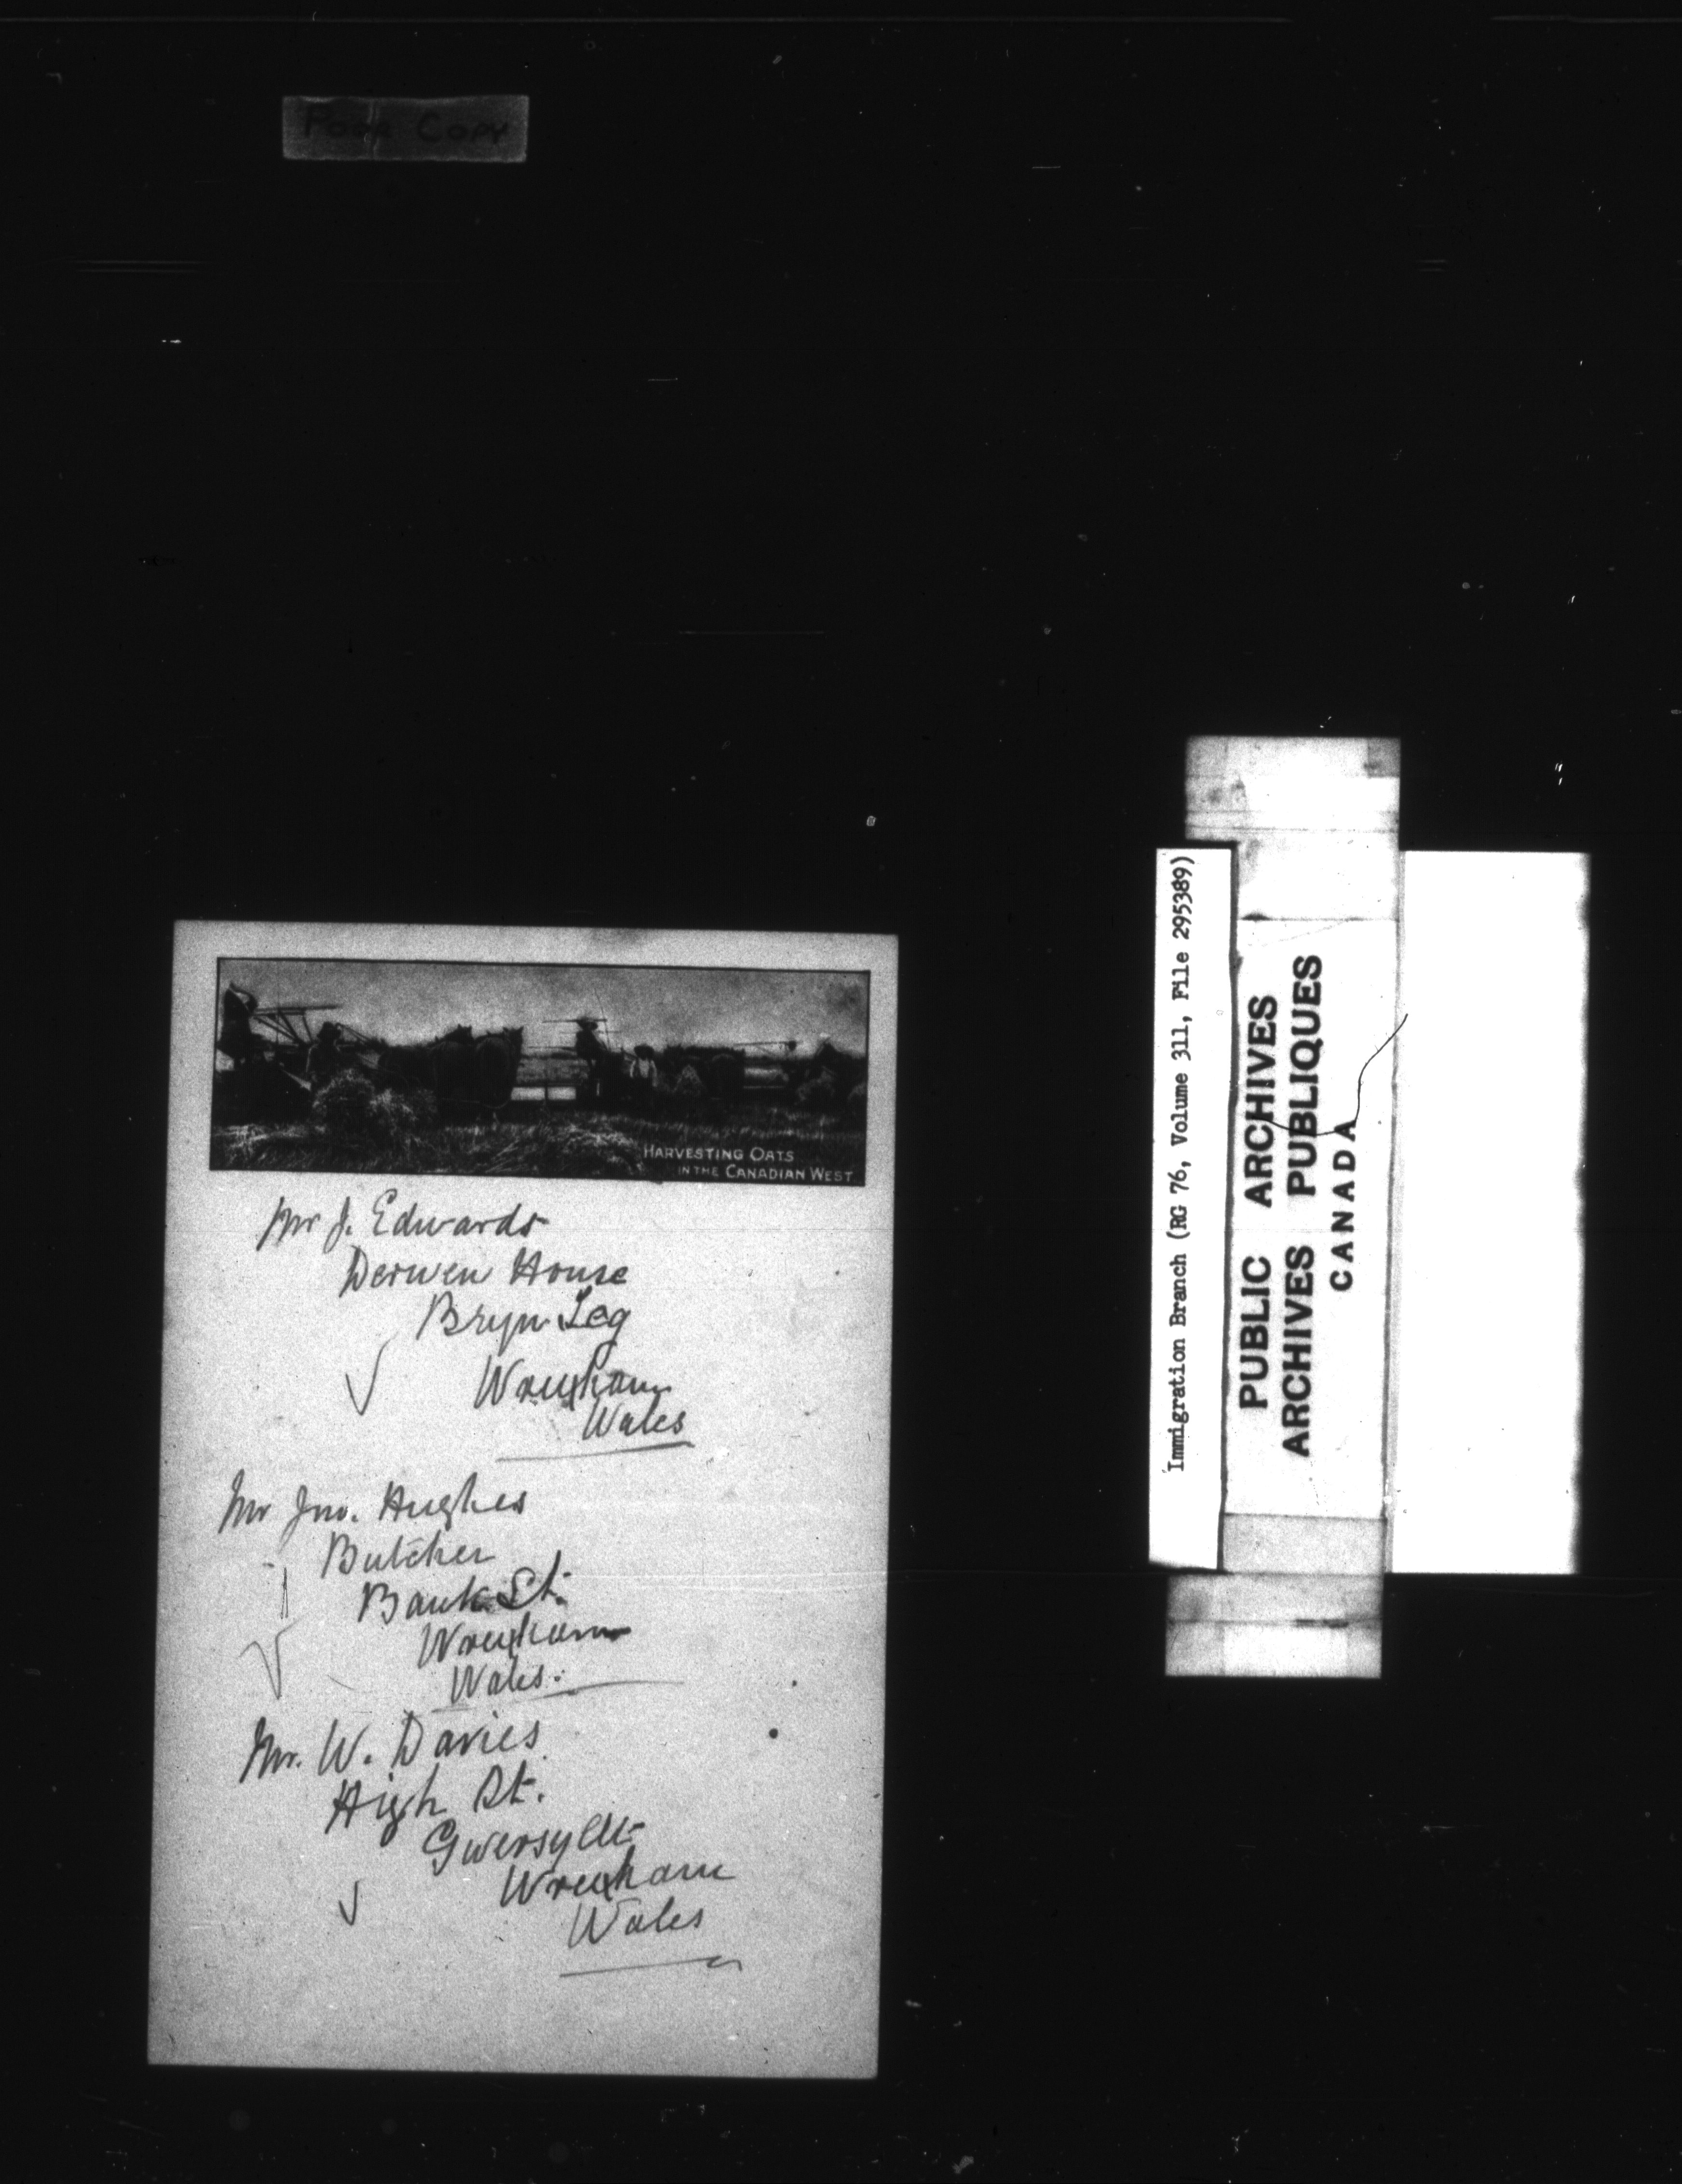 Poor Copy
HARVESTING OATS
IN THE CANADIAN WEST.
Mr J. Edwards
Derwen House
Bryn Teg
Wrexham
Wales
Mr Jno. Hughes
Butcher
Bank St.
Wrexham
Wales.
Mr. W. Davies
High St.
Gwersyllt
Wrexham
Wales
Immigration Branch (RG 76, Volume 311, File 295389)
PUBLIC ARCHIVES
ARCHIVES PUBLIQUES
CANADA